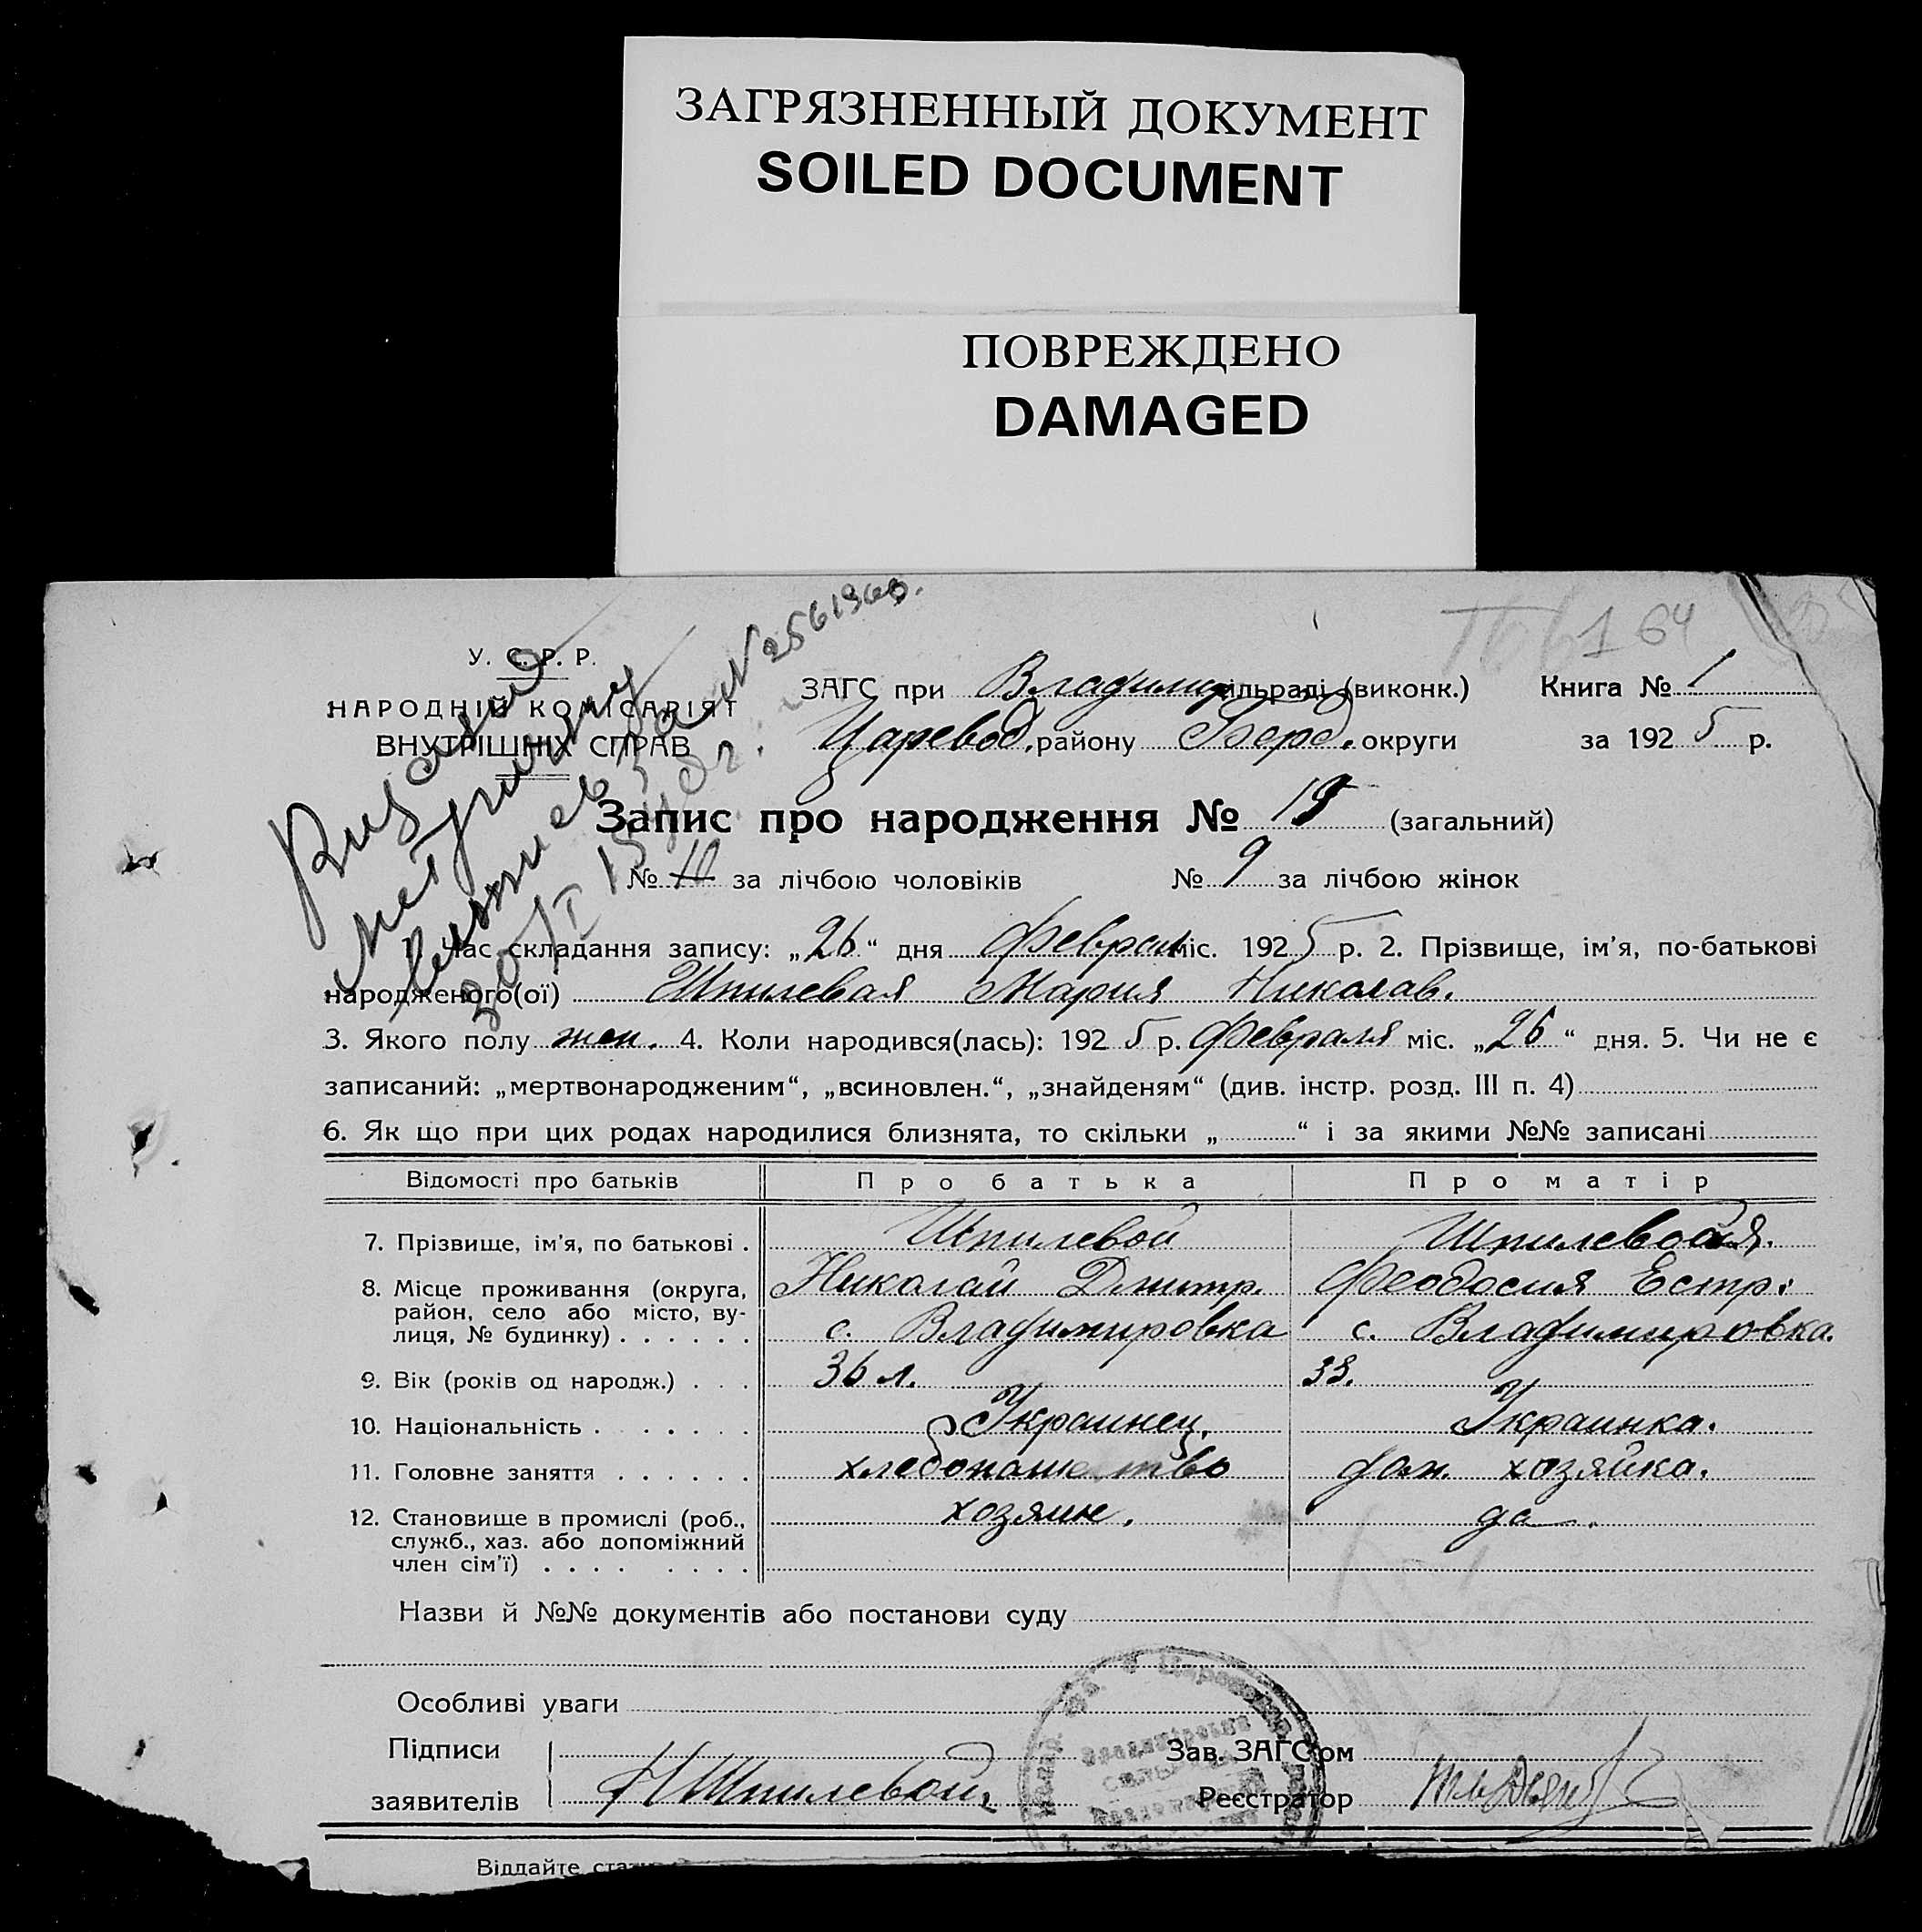 ЗАГРЯЗНЕННЫЙ ДОКУМЕНТ
SOILED DOCUMENT
ПОВРЕЖДЕНО
DAMAGED
164
У. С. Р. Р.
НАРОДНІЙ КОМІСАРІЯТ
ВНУТРІШНІХ СПРАВ
ЗАГС при Владимир сільраді (виконк.) Книга № 1
Царевод. району Берд. округи за 1925 р.
Запис про народження № 19 (загальний)
№ 10 за лічбою чоловіків № 9 за лічбою жінок
Час складання запису: „26“ дня Феврал міс. 1925 р. 2. Прізвище, ім'я, по-батькові
народженого(ої) Шпилевая Мария Николав.
3. Якого полу жен. 4. Коли народився(лась): 1925 р. Февраля міс. „26“ дня. 5. Чи не є
записаний: „мертвонародженим“, „всиновлен.“, „знайденям“ (див. інстр. розд. III п. 4)
6. Як що при цих родах народилися близнята, то скільки „ “ і за якими №№ записані
Відомості про батьків Про батька Про матір
7. Прізвище, ім'я, по батькові . Шпилевой Шпилевая.
8. Місце проживання (округа, Николай Дмитр. Феодосия Естр.
район, село або місто, ву-
лиця, № будинку) . . . . . . с. Владимировка с. Владимировка.
9. Вік (років од народж.) . . . 36 л. 33.
10. Національність . . . . . . . Украинец. Украинка.
11. Головне заняття . . . . . . хлебопашество дом. хозяйка.
12. Становище в промислі (роб., хозяин. да.
служб., хаз. або допоміжний
член сім'ї) . . . . . . . .
Назви й №№ документів або постанови суду
Особливі уваги
Підписи Зав. ЗАГС'ом
заявителів НШпилевой Реєстратор
Віддайте